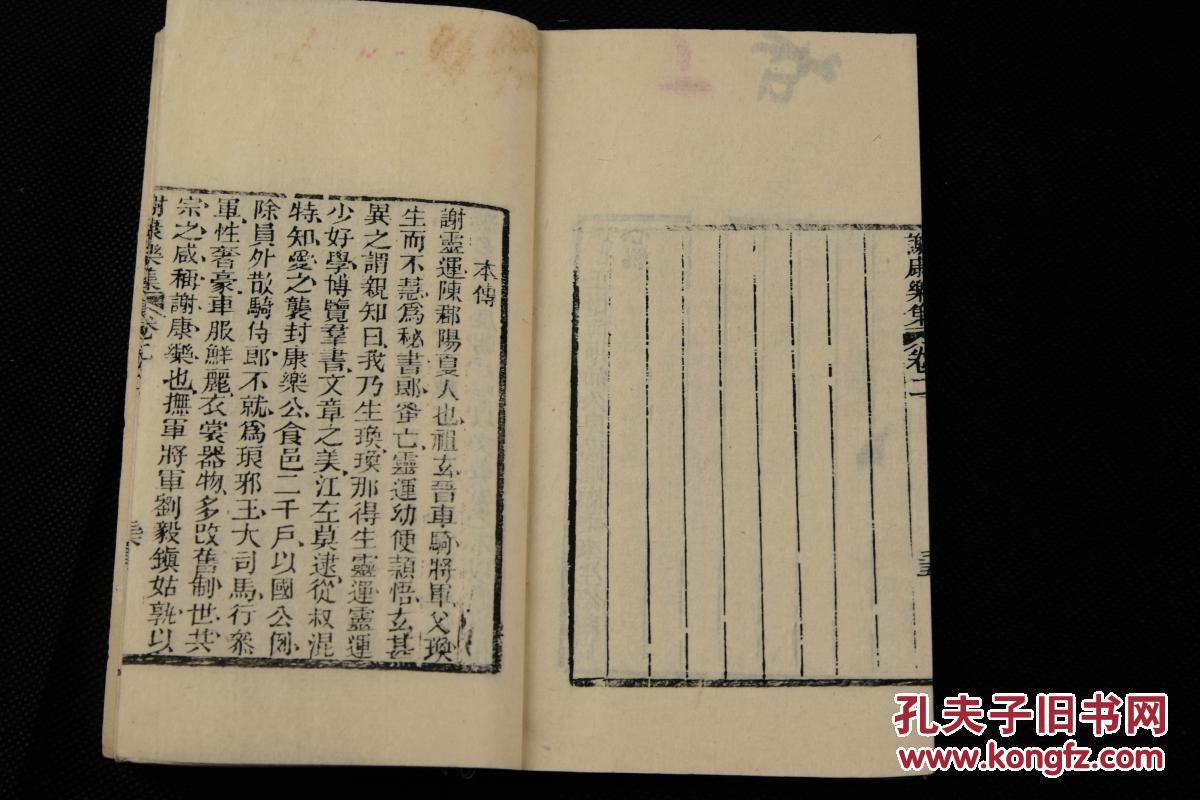 謝康樂集
卷二
三五
本傳
謝靈運陳郡陽夏人也祖玄晉車騎將軍父瑍
生而不慧爲秘書郎蚤亡靈運幼便穎悟玄甚
異之謂親知曰我乃生瑍瑍那得生靈運靈運
少好學博覽羣書文章之美江左莫逮從叔混
特知愛之襲封康樂公食邑二千戶以國公例
除員外散騎侍郎不就爲琅邪王大司馬行參
軍性奢豪車服鮮麗衣裳器物多改舊制世共
宗之咸稱謝康樂也撫軍將軍劉毅鎮姑孰以
謝康樂集
孔夫子旧书网
www.kongfz.com